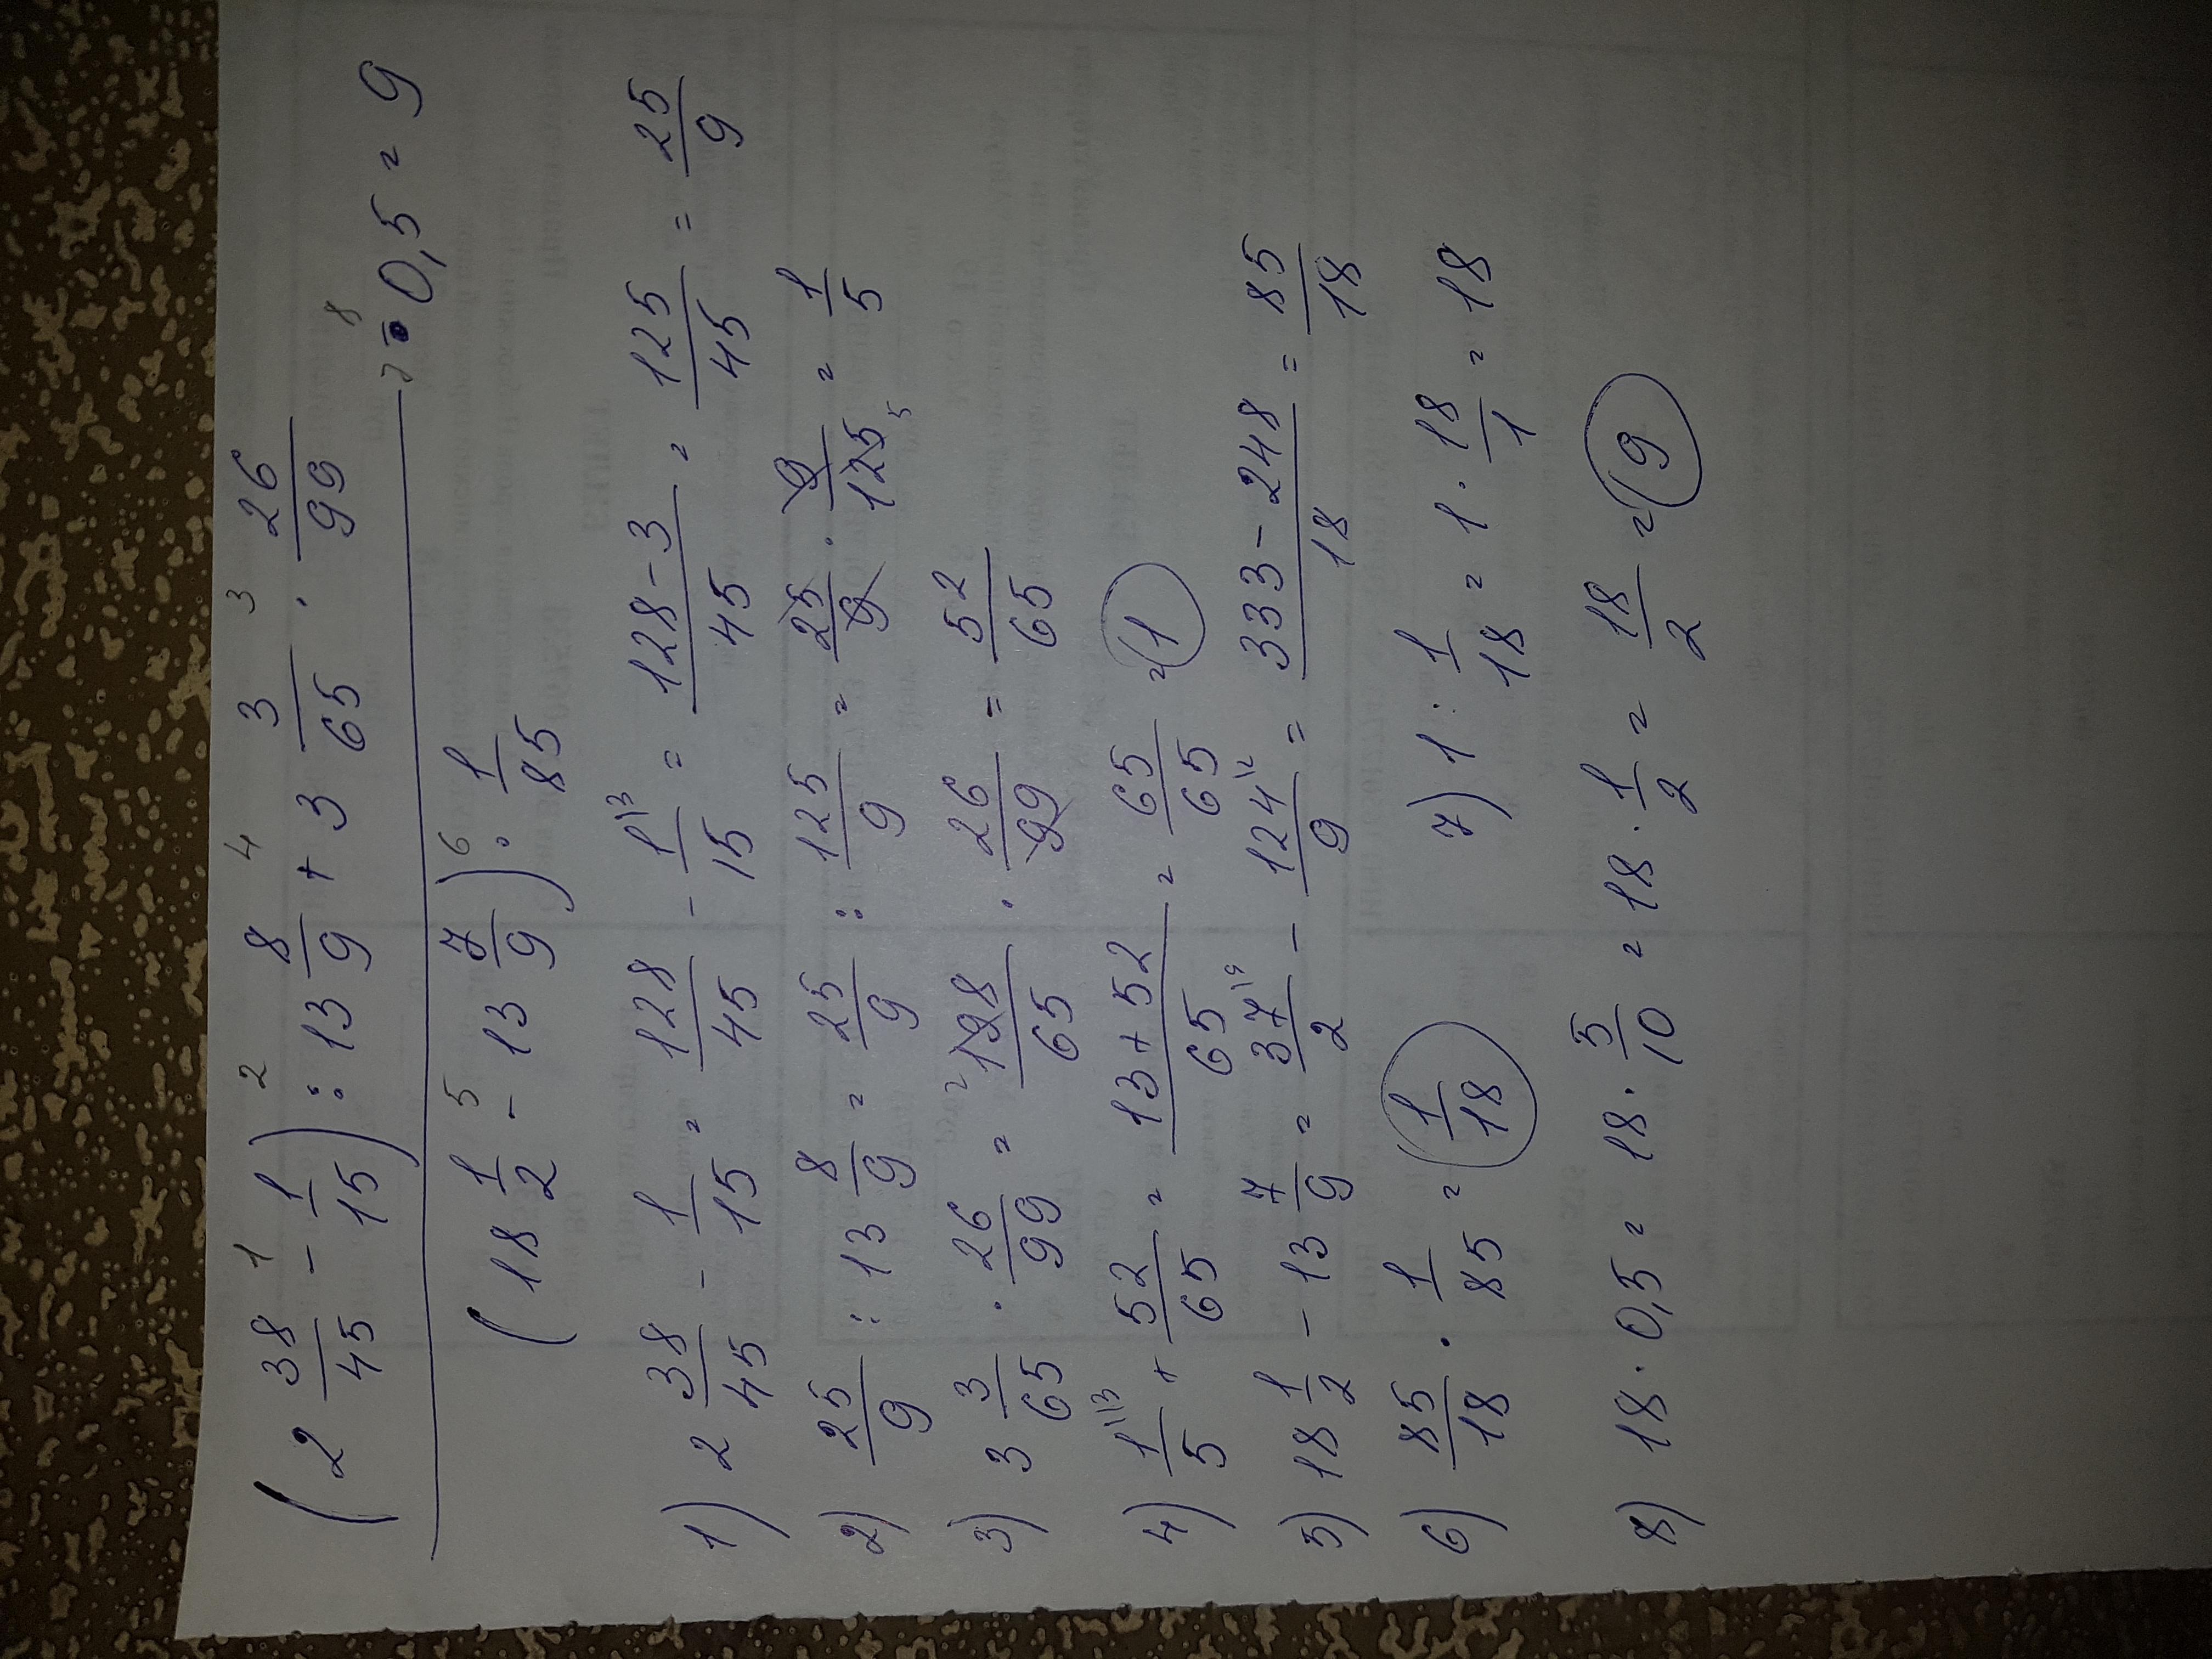 (2 38/45 - 1/15) : 13 8/9 + 3 3/65 · 26/99
1 2 4 3
7 8
· 0,5 = 9
(18 1/2 - 13 7/9) · 1/85
5 6
1) 2 38/45 - 1/15 = 128/45 - 1\3/15 = 128-3/45 = 125/45 = 25/9
2) 25/9 : 13 8/9 = 25/9 : 125/9 = 25/9 · 9/125 5 = 1/5
3) 3 3/65 · 26/99 = 2 198/65 · 26/99 = 52/65
4) 1\13/5 + 52/65 = 13+52/65 = 65/65 = 1
5) 18 1/2 - 13 7/9 = 37\9/2 - 124\2/9 = 333-248/18 = 85/18
6) 85/18 · 1/85 = 1/18 7) 1 : 1/18 = 1 · 18/1 = 18
8) 18 · 0,5 = 18 · 5/10 = 18 · 1/2 = 18/2 = 9